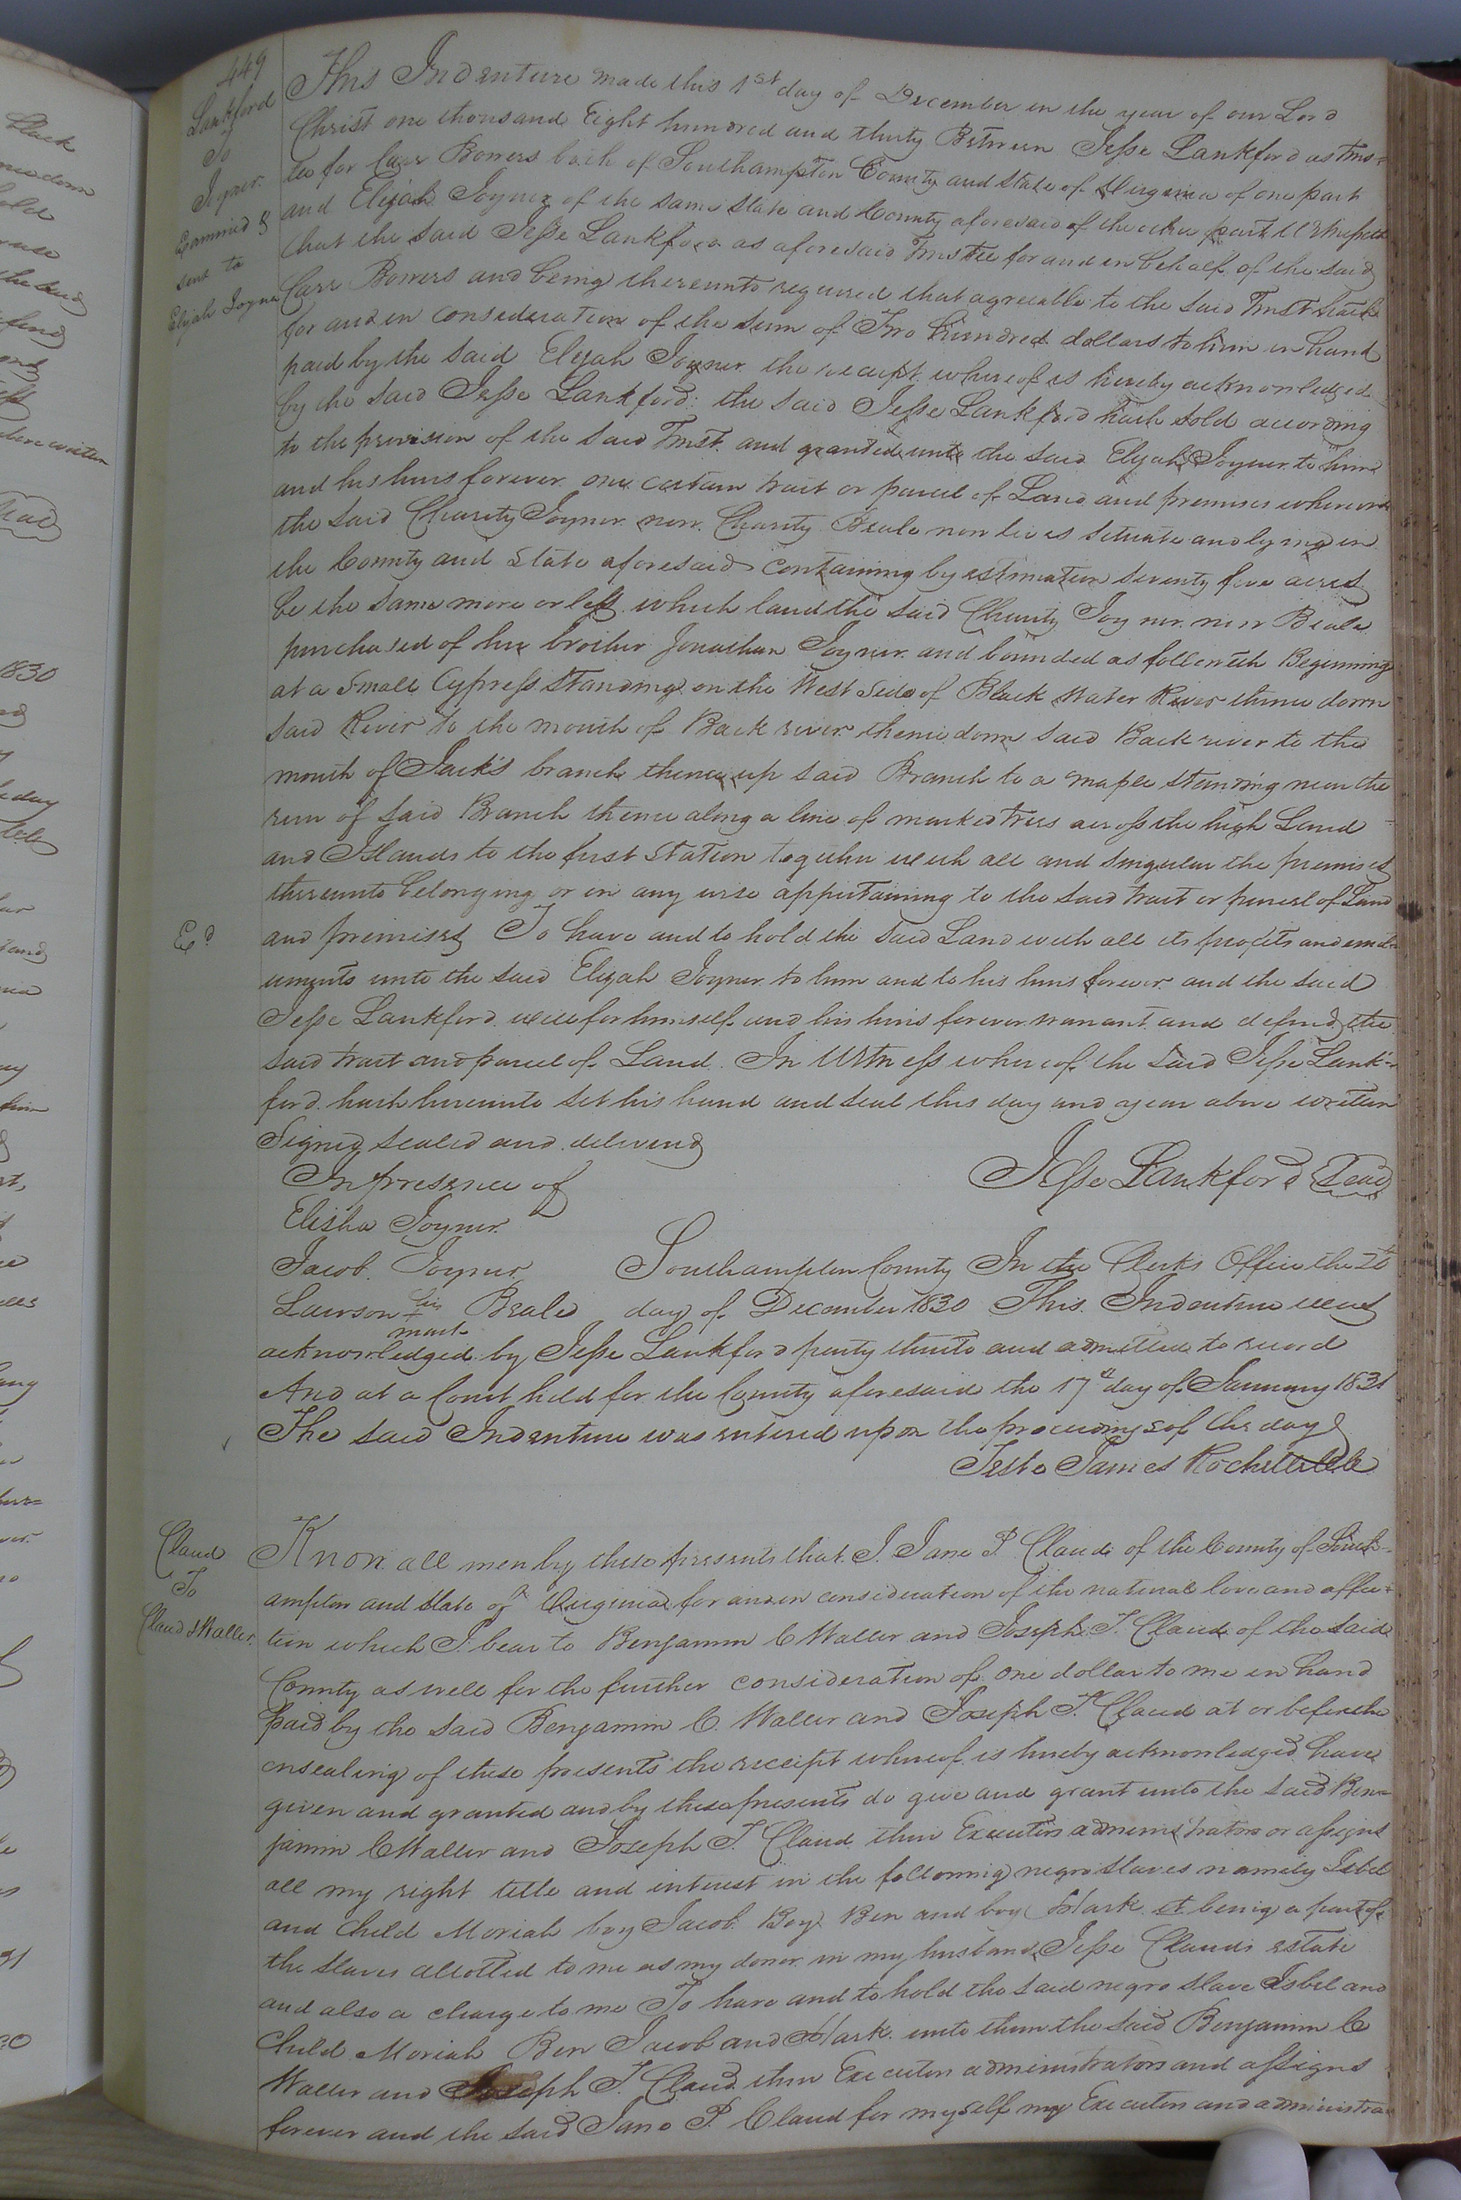 449
Lankford
To
Joyner
Examined &
sent to
Elijah Joyner
This Indenture made this 1st day of December in the year of our Lord
Christ one thousand Eight hundred and thirty Between Jesse Lankford as Trus=
tee for Carr Bowers both of Southampton County and State of Virginia of one part
and Elijah Joyner of the same State and County aforesaid of the other part Witnesseth
that the said Jesse Lankford as aforesaid Trustee for and in behalf of the said
Carr Bowers and being thereunto required that agreeable to the said Trust hath
for and in consideration of the sum of Two hundred dollars to him in hand
paid by the said Elijah Joyner the receipt whereof is hereby acknowledged
by the said Jesse Lankford: the said Jesse Lankford hath sold according
to the provision of the said Trust and granted unto the said Elijah Joyner to him
and his heirs forever one certain trait or parcel of Land and premises whereon
the said Charity Joyner now Charity Beale now lives situate and lying in
the County and State aforesaid containing by estimation seventy five acres
be the same more or less which land the said Charity Joyner now Beale
purchased of her brother Jonathan Joyner and bounded as followeth Beginning
at a small Cypress standing on the West side of Black water River thence down
said River to the mouth of Back river thence down said Back river to the
mouth of Jack's branch thence up said Branch to a maple standing near the
run of said Branch thence along a line of marked trees across the high Land
and Islands to the first station together with all and singular the premises
thereunto belonging or in any wise appertaining to the said trait or parcel of Land
Ed
and premises To have and to hold the said Land with all its profits and emol=
uments unto the said Elijah Joyner to him and to his heirs forever and the said
Jesse Lankford will for himself and his heirs forever warrant and defend the
said trait and parcel of Land. In Witness whereof the said Jesse Lank=
ford hath hereunto set his hand and seal this day and year above written
Signed sealed and delivered
In presence of
Jesse Lankford Seal
Elisha Joyner
Jacob Joyner Southampton County In the Clerks Office the 20
Lawson his Beale day of December 1830 This Indenture was
mark
acknowledged by Jesse Lankford party thereto and admitted to record
And at a Court held for the County aforesaid the 17th day of January 1831
The said Indenture was entered upon the proceedings of the day
Teste James Rochelle
Claud
To
Claud & Waller
Know all men by these presents that I Jane P. Claud of the County of South=
ampton and State of Virginia for and in consideration of the natural love and affec=
tion which I bear to Benjamin C Waller and Joseph T. Claud of the said
County as well for the further consideration of one dollar to me in hand
paid by the said Benjamin C. Waller and Joseph T. Claud at or before the
ensealing of these presents the receipt whereof is hereby acknowledged have
given and granted and by these presents do give and grant unto the said Ben=
jamin C Waller and Joseph T. Claud their Executors administrators or assigns
all my right title and interest in the following negro slaves namely Isbel
and Child Moriah boy Jacob Boy Ben and boy Hark it being a part of
the slaves allotted to me as my dower in my husband Jesse Clauds estate
and also a charge to me To have and to hold the said negro slave Isbel and
Child Moriah Ben Jacob and Hark unto them the said Benjamin C
Waller and Joseph T. Claud their Executors administrators and assigns
forever and the said Jane P. Claud for myself my Executors and administra